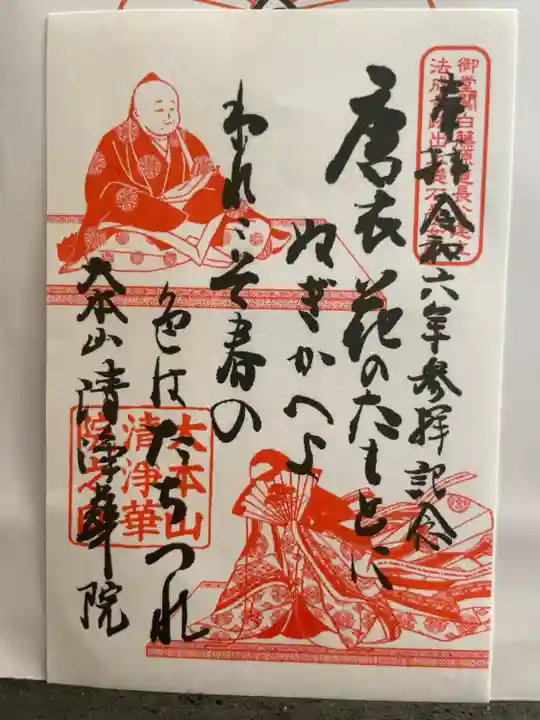 奉拝 令和六年参拝記念
唐衣 花のたもとに
ぬぎかへよ
われこそ春の
色はたちつれ
大本山 清浄華院
御堂関白藤原道長
法成寺
出
礎石
大本山
清浄華
院